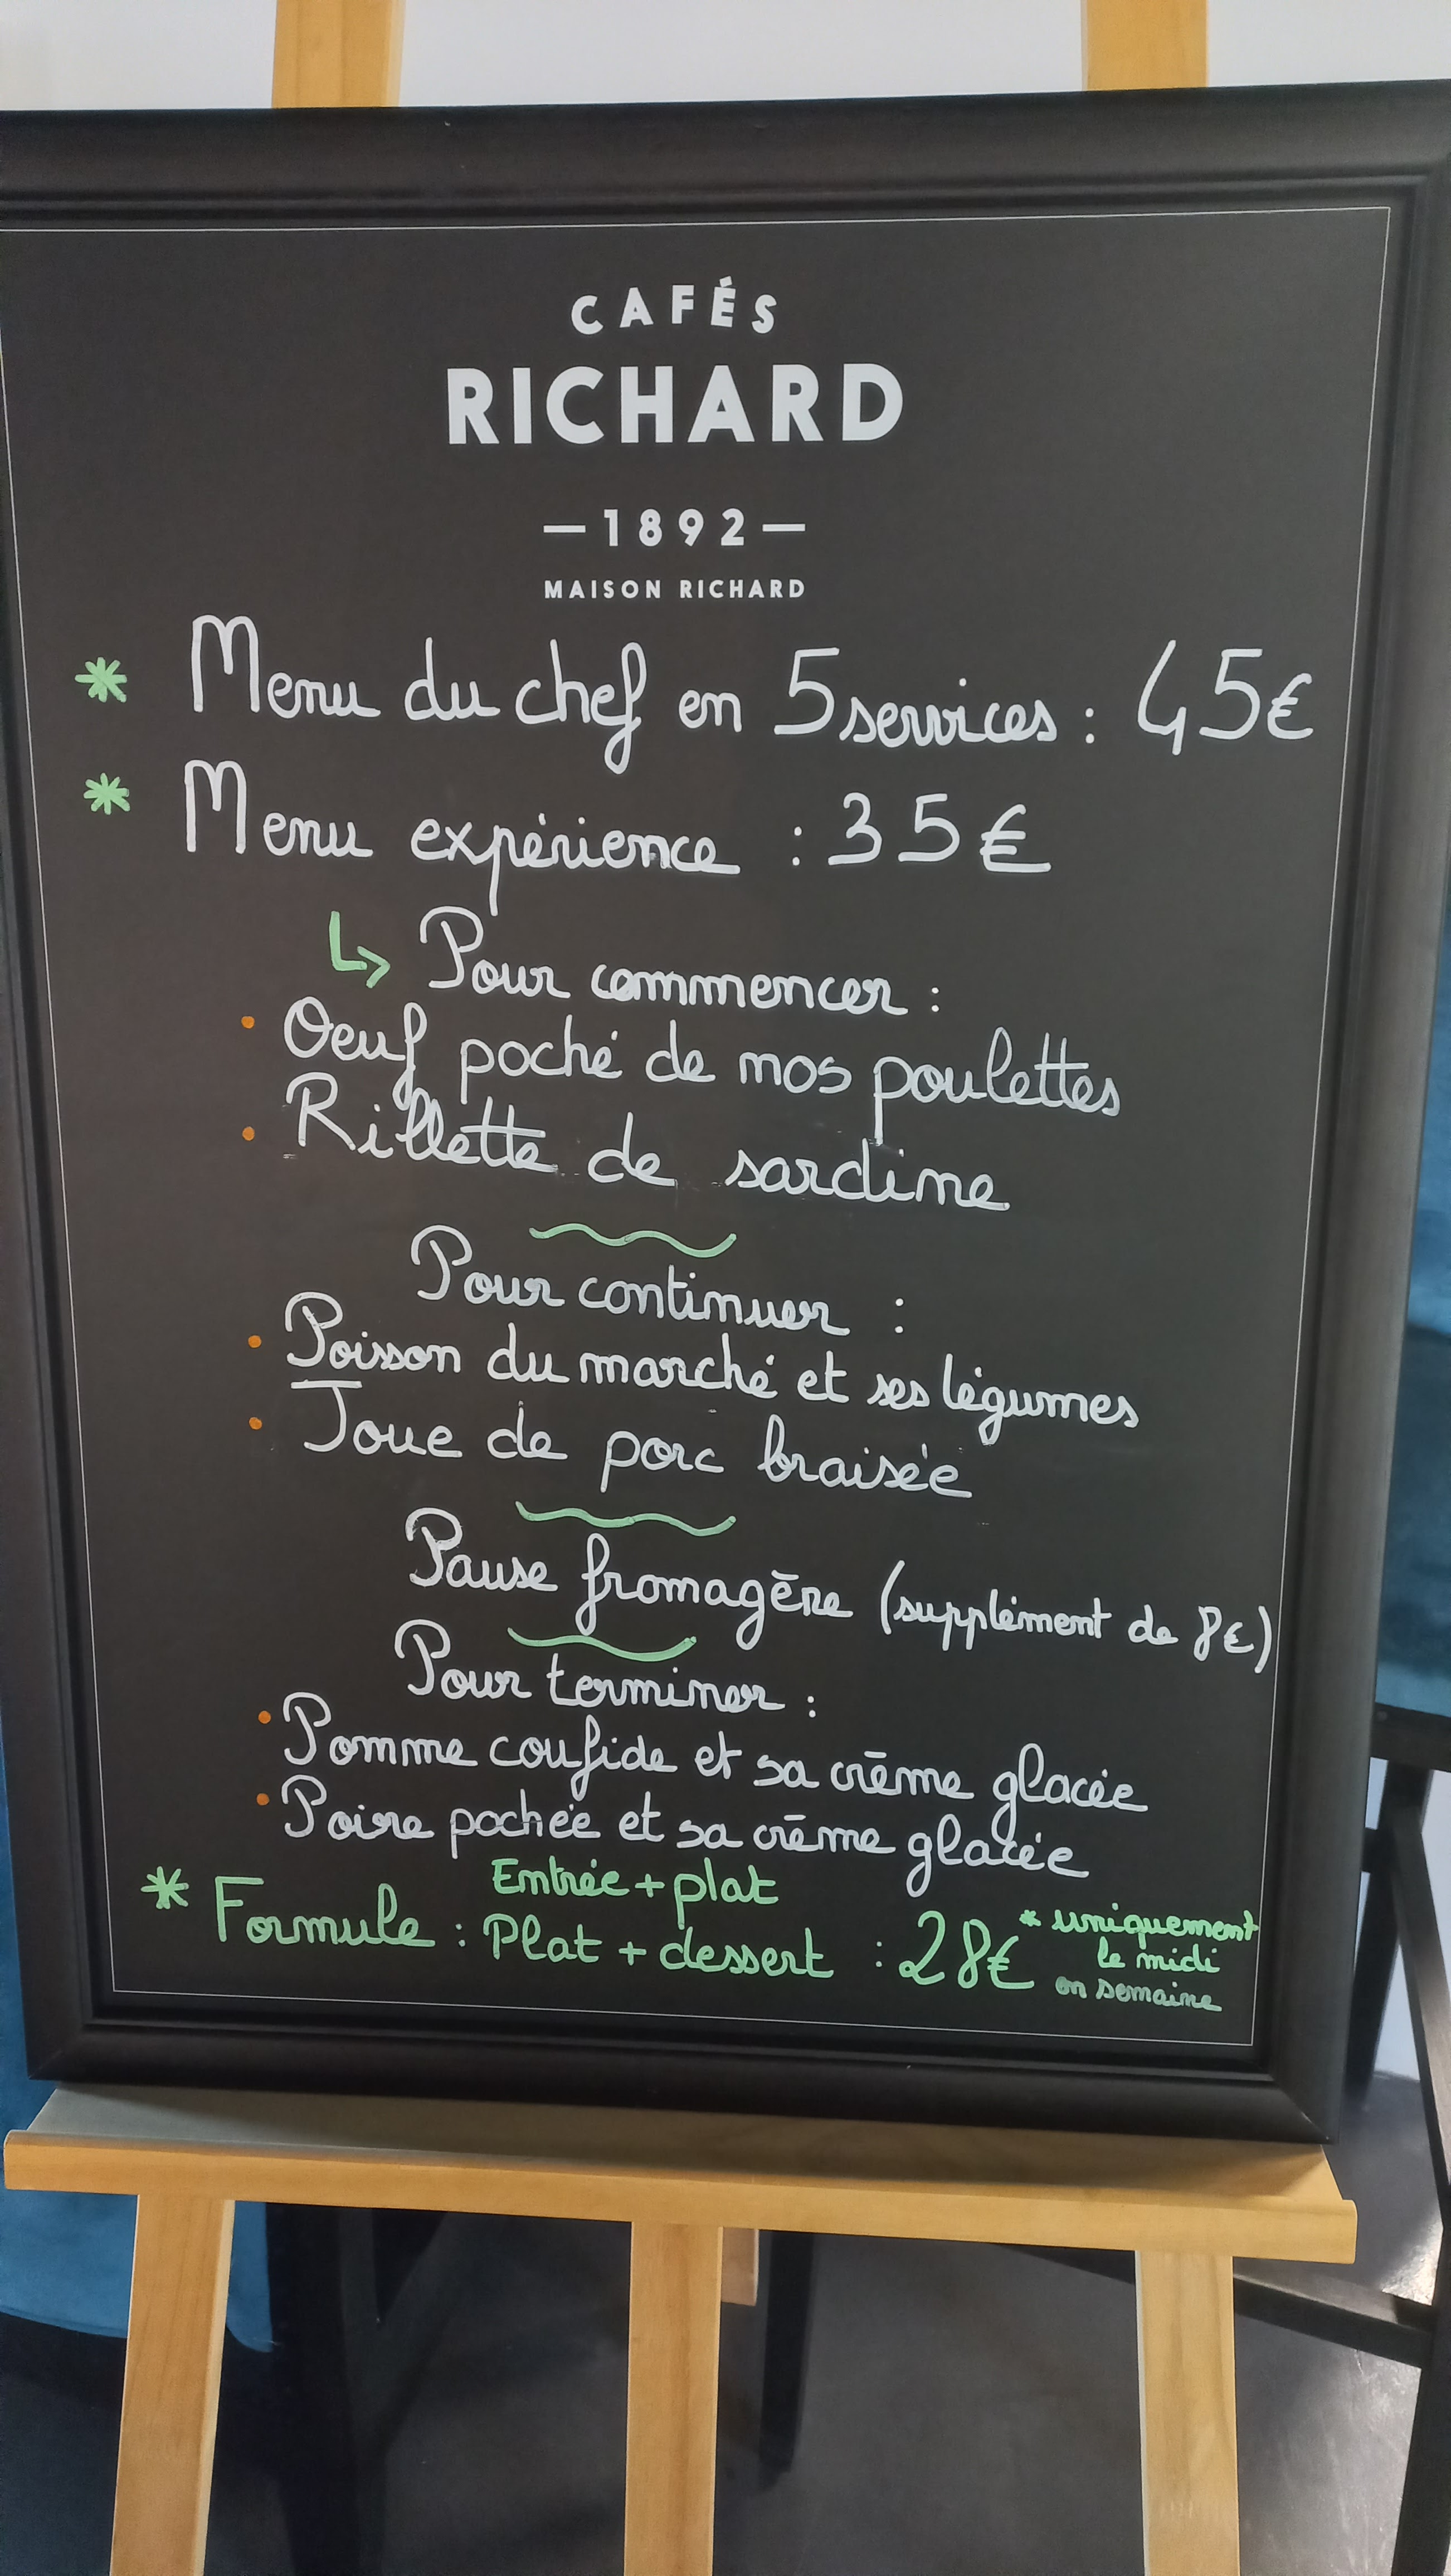 CAFÉS
RICHARD
—1892—
MAISON RICHARD
* Menu du chef en 5 services : 45€
* Menu expérience : 35€
↳ Pour commencer :
• Oeuf poché de nos poulettes
• Rillette de sardine
Pour continuer :
• Poisson du marché et ses légumes
• Joue de porc braisée
Pause fromagère (supplément de 8€)
Pour terminer :
• Pomme confide et sa crème glacée
• Poire pochée et sa crème glacée
Entrée + plat
* Formule : Plat + dessert : 28€ * uniquement
le midi
en semaine